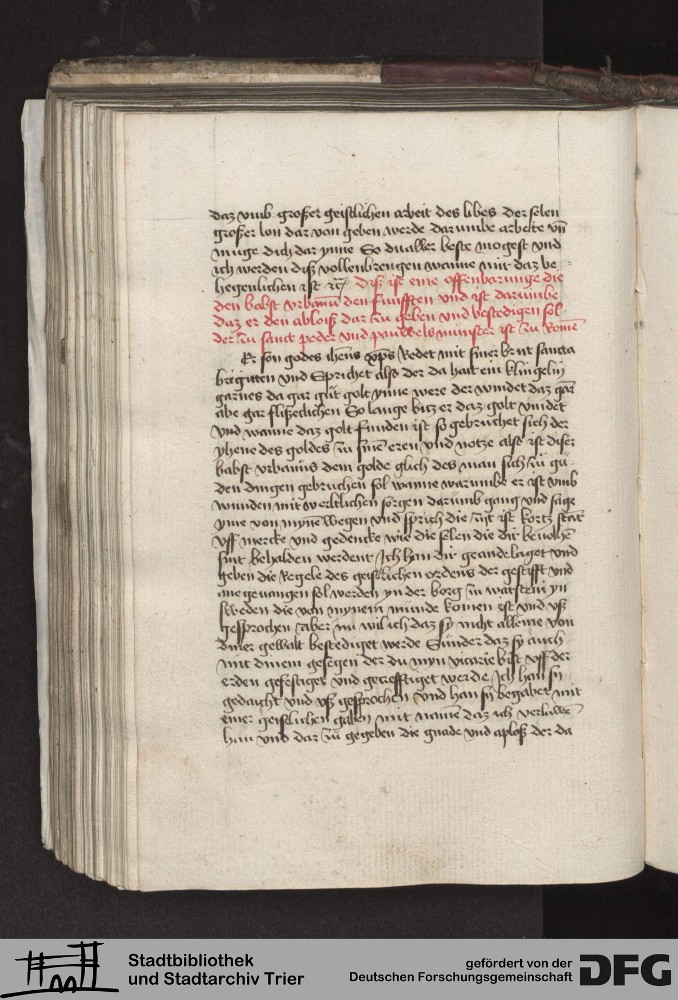 daz vmb großer geistlichen arbeit des libes der selen
großer lon dar von geben werde dar vmbe arbeite vñ
muge dich dar ynne So du aller beste mogest vnd
ich werden diß vollenbrengen wanne mit daz be
hegenlichen ist Diß ist eine offenbarunge die
den babst vrbanū den funfften vnd ist darumbe
daz er den abloiß dar zu geben vnd bestedigen sol
der zu sanct peder vnd pauwels munster ist zu Rome
Er son godes ihesus xp̄s Redet mit siner brut sancta
brigitten vnd Sprichet also der da hait ein klingelin
garnes da gar gut golt ynne were der windet daz garn
abe gar flißeclichen So lange bitz er daz golt vindet
vnd wanne daz golt funden ist so gebruchet sich der
yhene des goldes zu sinē eren vnd notze also ist diser
babst vrbanus dem golde glich des man sich zu gu
den dingen gebruchen sol wanne warumbe er ist vmb
wunden mit werltlichen sorgen darumb gang vnd sage
yme von mynē wegen vnd sprich die zijt ist kortz stant
vff mercke vnd gedencke wie die selen die dir beuolhē
sint behalden werdent Ich han dir geandelaget vnd
geben die Regele des geistlichen ordens der gestifft vnd
ane gevangen sol werden yn der borg zu watstein yn
sweden die von mynem munde komen ist vnd vß
gesprochen Aber nu wil ich daz sy nicht alleine von
diner gewalt bestediget werde Sunder daz sy auch
mit dinem gesegen der du myn vicarie bist vff der
erden gefestiget vnd gecrefftiget werde Ich han sy
gedacht vnd vß gesprochen vnd han sy begabet mit
einer geistlichen gaben mit namē daz ich verluwē
han vnd dar zu gegeben die gnade vnd aploß der da
Stadtbibliothek
und Stadtarchiv Trier
gefördert von der
Deutschen Forschungsgemeinschaft
DFG